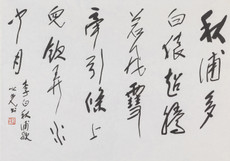 秋浦多
白猿超腾
若飞雪
牵引条上
儿饮弄水
中月
李白秋浦歌